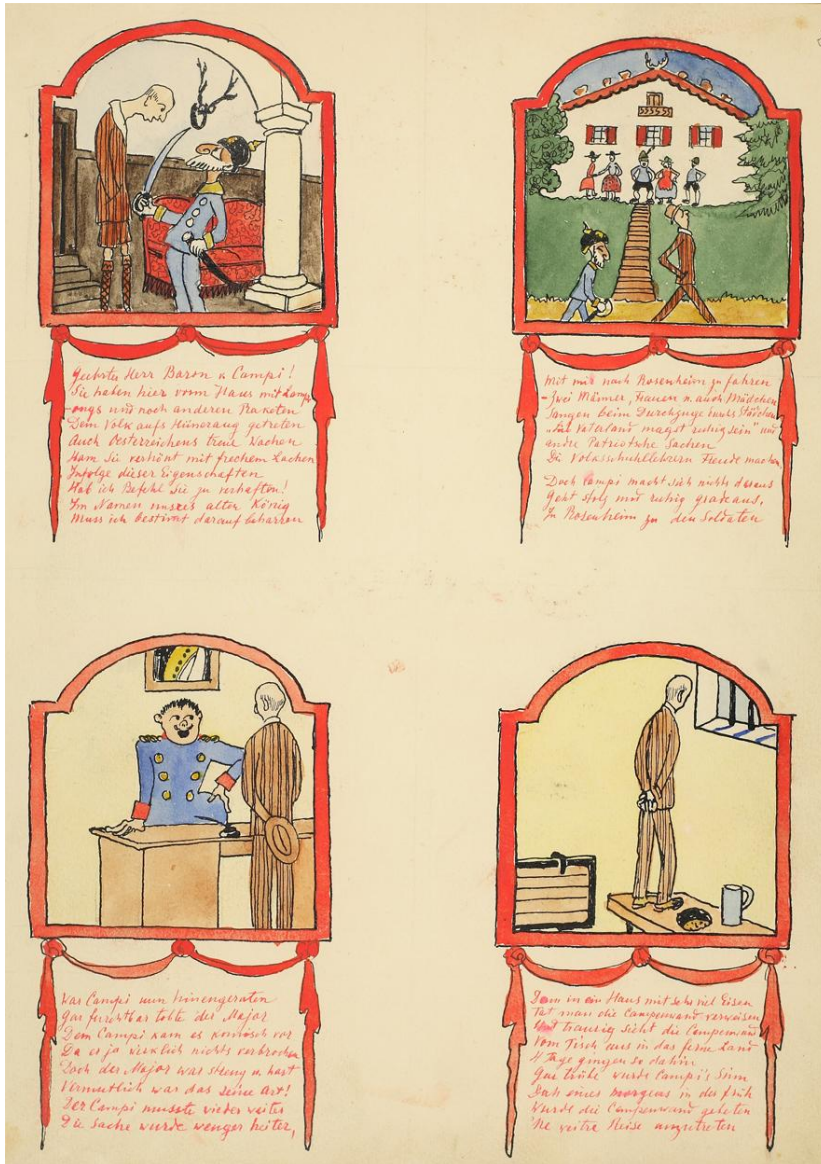 Geehrter Herr Baron v. Campi!
Sie haben hier vom Haus mit Lamp-
-ongs und noch anderen Raketen
Dem Volk aufs Hüneraug getreten
Auch Oesterreichens treue Wachen
Ham Sie verhönt mit frechem Lachen
Infolge dieser Eigenschaften
Hab ich Befehl Sie zu verhaften!
Im Namen unsres alten König
Muss ich bestimt darauf beharren
Mit mir nach Rosenheim zu fahren
- Zwei Männer, Frauen u. auch Mädchen
Sangen beim Durchzuge durchs Städchen
Vaterland magst ruhig sein" und
andre Patriotsche Sachen
Die Volksschullehrern Freude machen
Doch Campi macht sich nichts daraus
Geht stolz und ruhig gradeaus,
In Rosenheim zu den Soldaten
War Campi nun hineingeraten
Gar furchtbar tobte der Major
Dem Campi kam es komisch vor
Da er ja wirklich nichts verbrochen
Doch der Major war streng u. hart
Vermutlich war das seine Art!
Der Campi musste wieder weiter
Die Sache wurde wenger heiter,
Denn in ein Haus mit sehr viel Eisen
Tat man die Campenwand verweisen
Und traurig sieht die Campenwand
Vom Tisch aus in das ferne Land
4 Tage gingen so dahin
Gar trübe wurde Campi's Sinn
Doch eines morgens in der früh
Wurde die Campenwand gebeten
'Ne weitre Reise anzutreten